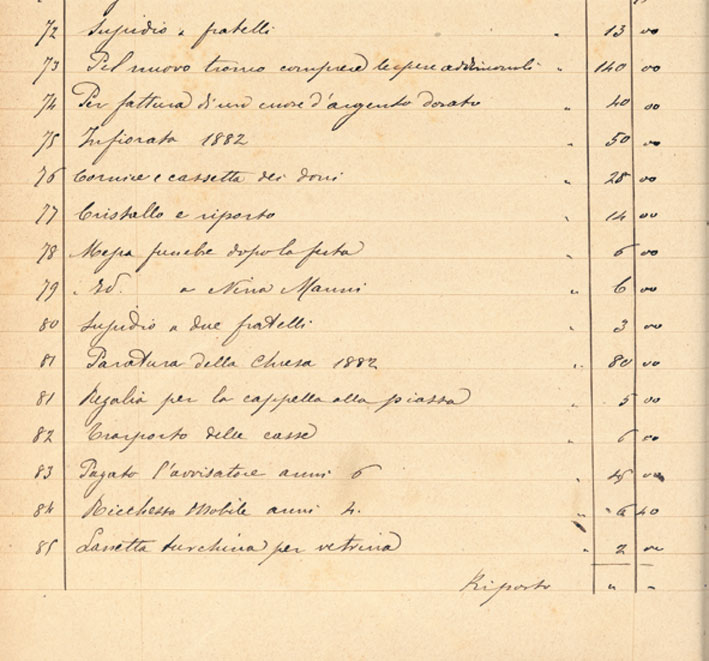 72 Sussidio a fratelli " 13 00
73 Pel nuovo trono comprese le spese addizionali " 140 00
74 Per fattura di un cuore d'argento dorato " 40 00
75 Infiorata 1882 " 50 00
76 Cornice e cassetta dei doni " 28 00
77 Cristallo e riporto " 14 00
78 Messa funebre dopo la festa " 6 00
79 Id. a Nina Manni " 6 00
80 Sussidio a due fratelli " 3 00
81 Paratura della Chiesa 1882 " 80 00
81 Regalia per la cappella alla piazza " 5 00
82 Trasporto delle casse " 6 00
83 Pagato l'avvisatore anni 6 " 00
84 Ricchezza Mobile anni 4. " 6 40
85 turchina per vetrina " 2 00
Riporto " "